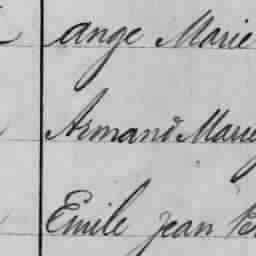 ange Marie
Armand Marie
Emile Jean